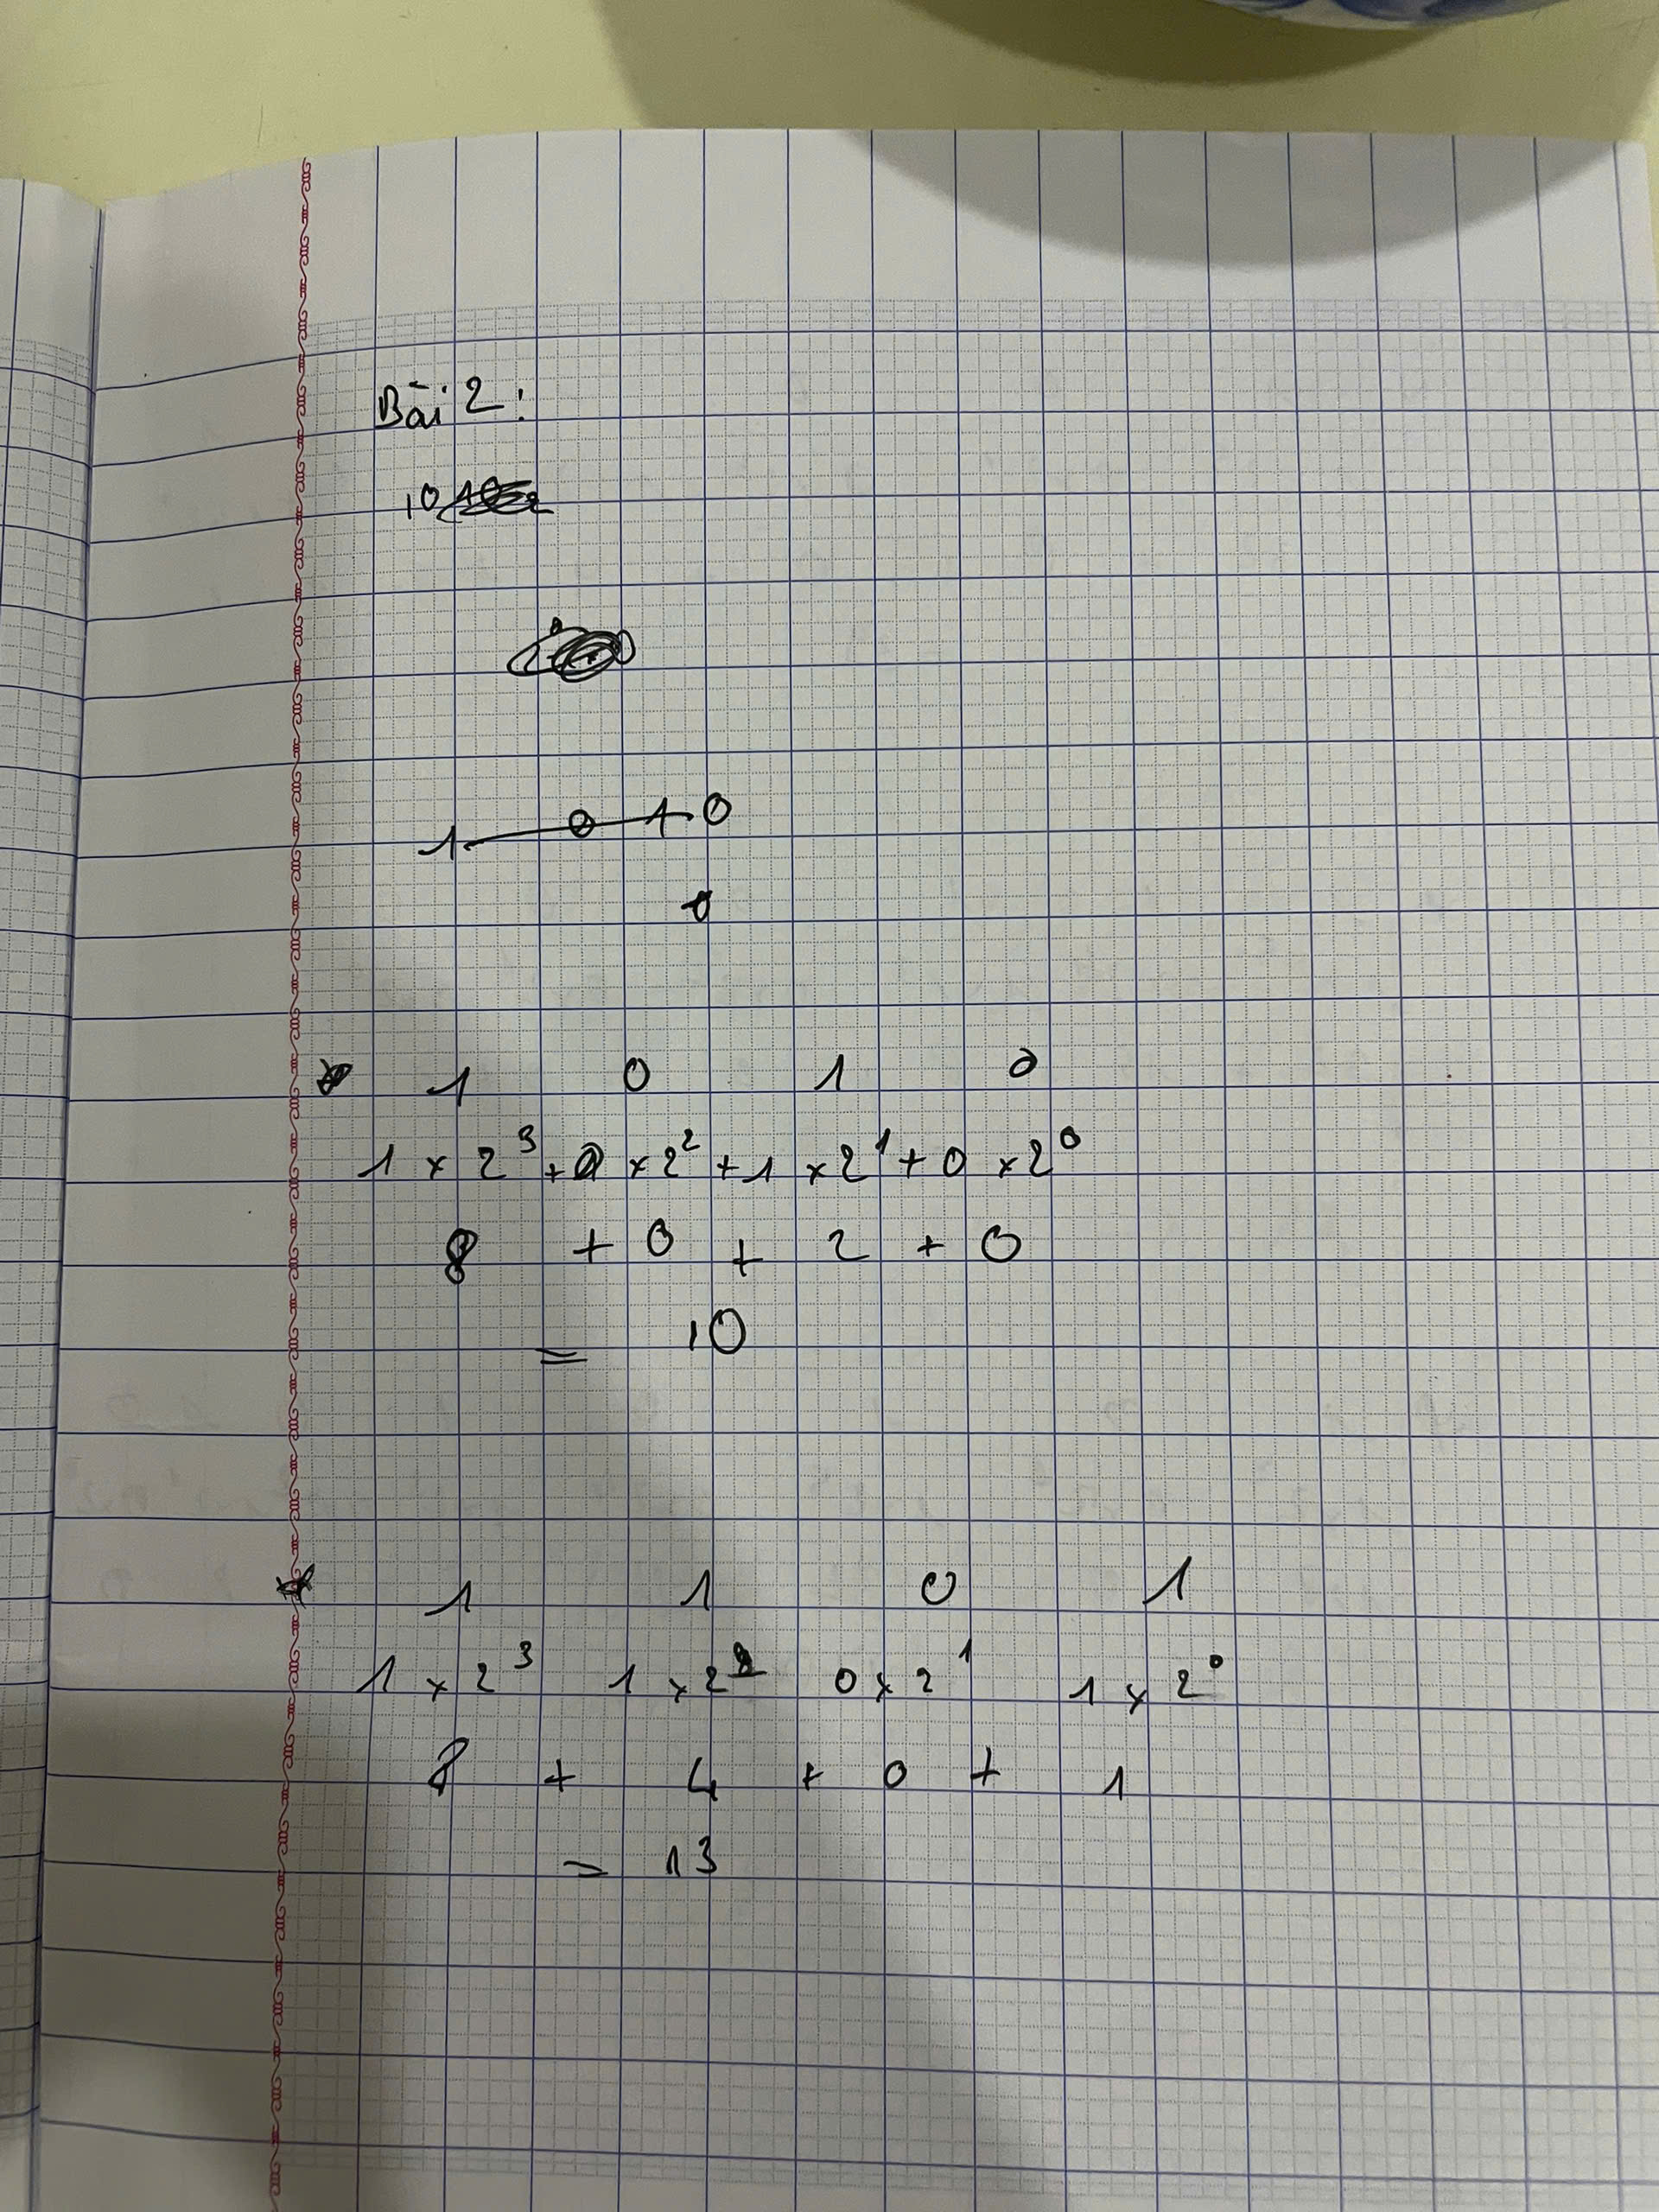 Bài 2:
10
1 0 1 0
0
1 0 1 0
1 × 2³ + 0 × 2² + 1 × 2¹ + 0 × 2⁰
8 + 0 + 2 + 0
= 10
1 1 0 1
1 × 2³ 1 × 2² 0 × 2¹ 1 × 2⁰
8 + 4 + 0 + 1
= 13